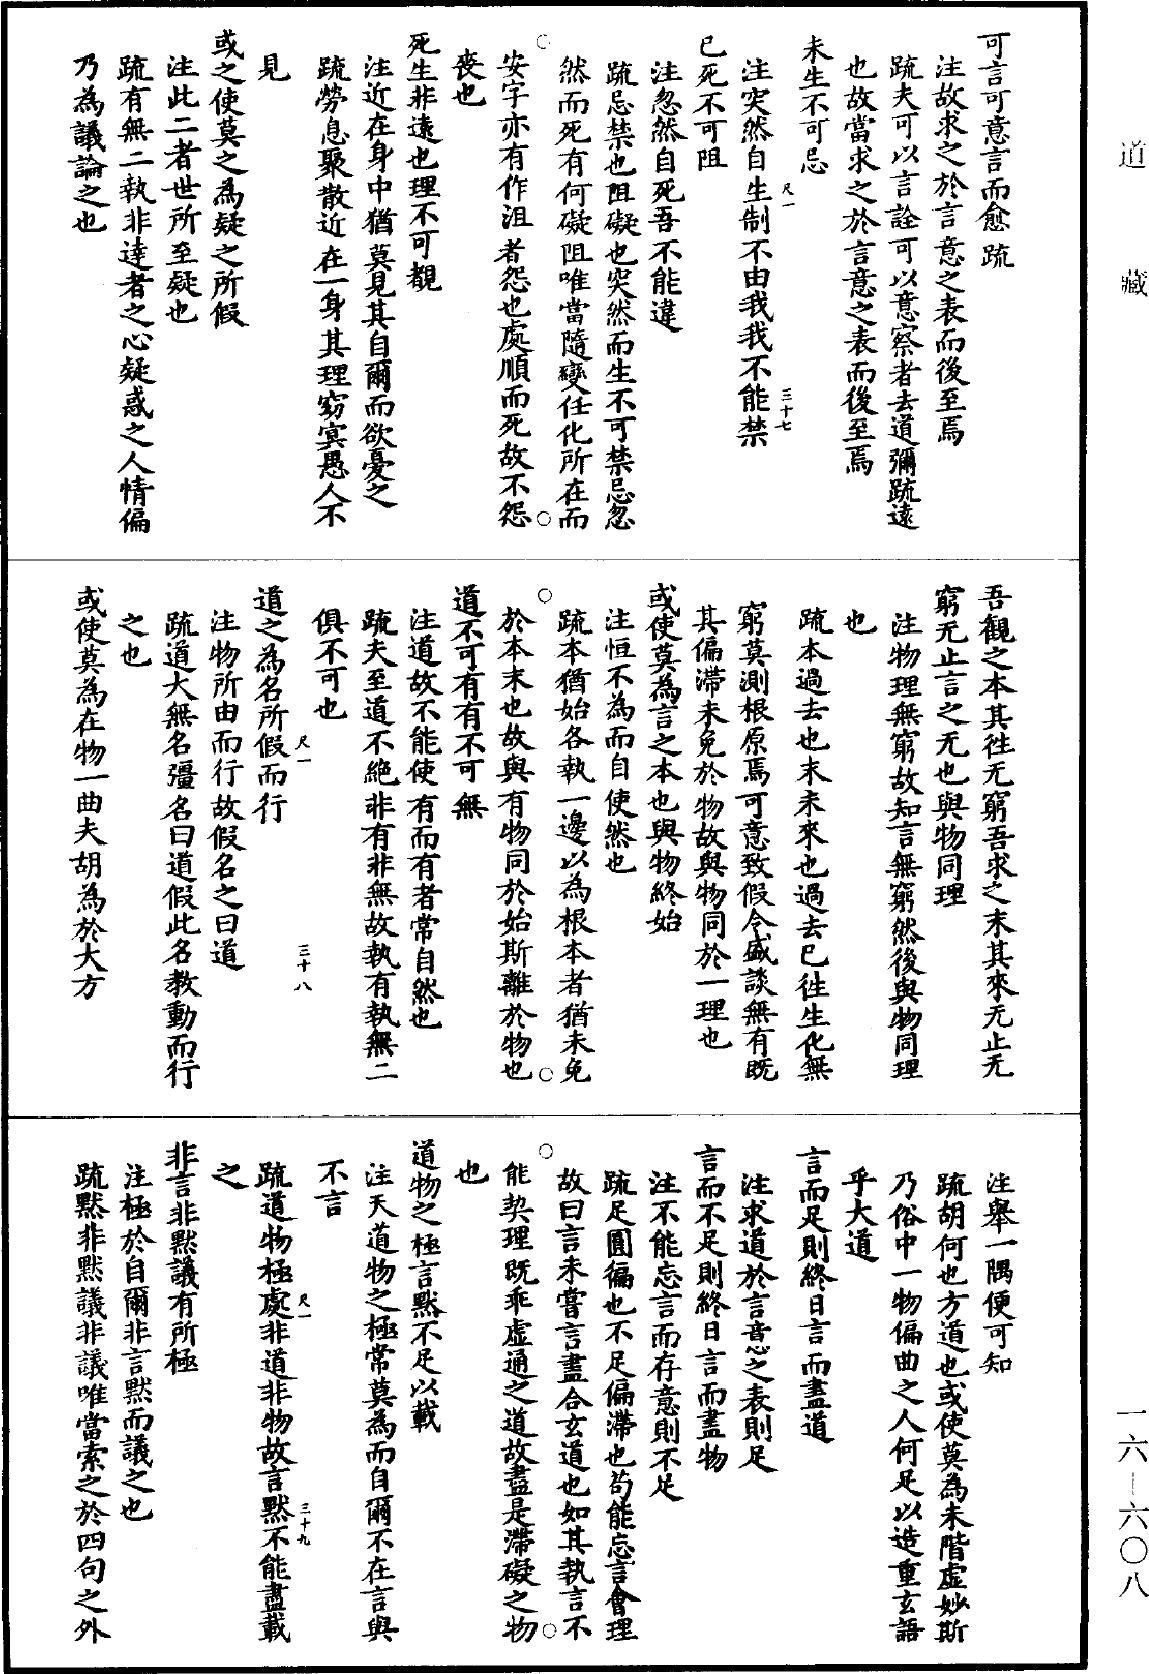 道藏
可言可意言而愈疏
注故求之於言意之表而後至焉
疏夫可以言詮可以意察者去道彌疏遠
也故當求之於言意之表而後至焉
未生不可忌
注突然自生制不由我我不能禁
尺一
三十七
已死不可阻
注忽然自死吾不能違
疏忌禁也阻礙也突然而生不可禁忌忽
然而死有何礙阻唯當隨變任化所在而
安字亦有作沮者怨也處順而死故不怨
喪也
死生非遠也理不可覩
注近在身中猶莫見其自爾而欲憂之
疏勞息聚散近在一身其理窈冥愚人不
見
或之使莫之為疑之所假
注此二者世所至疑也
疏有無二執非達者之心疑惑之人情偏
乃為議論之也
吾觀之本其往无窮吾求之末其來无止无
窮无止言之无也與物同理
注物理無窮故知言無窮然後與物同理
也
疏本過去也末未來也過去已往生化無
窮莫測根原焉可意致假令盛談無有既
其偏滯未免於物故與物同於一理也
或使莫為言之本也與物終始
注恒不為而自使然也
疏本猶始各執一邊以為根本者猶未免
於本末也故與有物同於始斯離於物也
道不可有有不可無
注道故不能使有而有者常自然也
疏夫至道不絶非有非無故執有執無二
俱不可也
尺一
三十八
道之為名所假而行
注物所由而行故假名之曰道
疏道大無名彊名曰道假此名教動而行
之也
或使莫為在物一曲夫胡為於大方
注舉一隅便可知
疏胡何也方道也或使莫為未階虛妙斯
乃俗中一物偏曲之人何足以造重玄語
乎大道
言而足則終日言而盡道
注求道於言意之表則足
言而不足則終日言而盡物
注不能忘言而存意則不足
疏足圓徧也不足偏滯也苟能忘言會理
故曰言未嘗言盡合玄道也如其執言不
能契理既乖虛通之道故盡是滯礙之物
也
道物之極言默不足以載
注夭道物之極常莫為而自爾不在言與
不言
尺一
三十九
疏道物極處非道非物故言默不能盡載
之
非言非默議有所極
注極於自爾非言默而議之也
疏默非默議非議唯當索之於四句之外
一六－六〇八